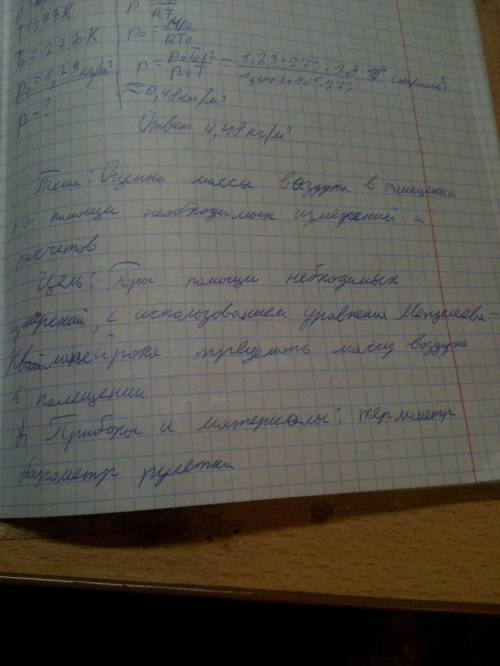 T=273K ρ=
T₀=273K ρ₀=Mp₀/RT₀
ρ₀=1,29кг/м³ ρ=ρ₀T₀p/p₀T=
ρ-?
≈0,48кг/м³
Ответ 0,48кг/м³
Тема: Оценка массы воздуха в помещении
помощи необходимых измерений и
расчетов
Цель: При помощи небходимых
с использованием уравнения Менделеева-
определить массу воздуха
в помещении
Приборы и материалы: термометр
барометр рулетка